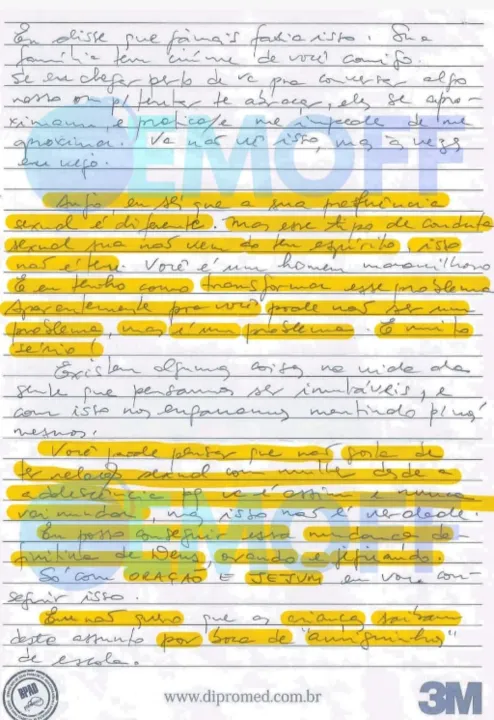 Eu disse que jamais faria isso. Sua
família tem ciúme de você comigo.
Se eu chegar perto de vc pra conversar algo
nosso ou p/ tentar te abraçar, eles se apro-
ximam, e pratica/e me impede de me
aproximar. Vc não vê isso, mas às vezes
eu vejo.
Anjo, eu sei que a sua preferência
sexual é diferente. Mas esse tipo de conduta
sexual sua não vem do teu espírito, isso
não é teu. Você é um homem maravilhoso
E eu tenho como transformar esse problema
Aparentemente pra você pode não ser um
problema, mas é um problema. E muito
sério!
Existem algumas coisas na vida da
gente que pensamos ser imutáveis, e
com isso nos enganamos mentindo p/ nós
mesmos.
Você pode pensar que não gosta de
ter relação sexual com mulher desde a
adolescência pq vc é assim e nunca
vai mudar, mas isso não é verdade
Eu posso conseguir essa mudança de-
finitiva de Deus, orando e jejuando.
Só com ORAÇÃO E JEJUM eu vou con-
seguir isso.
Eu não quero que as crianças saibam
deste assunto por boca de "amiguinhos"
de escola.
EMOFF
EMOFF
BPAD
www.dipromed.com.br
3M